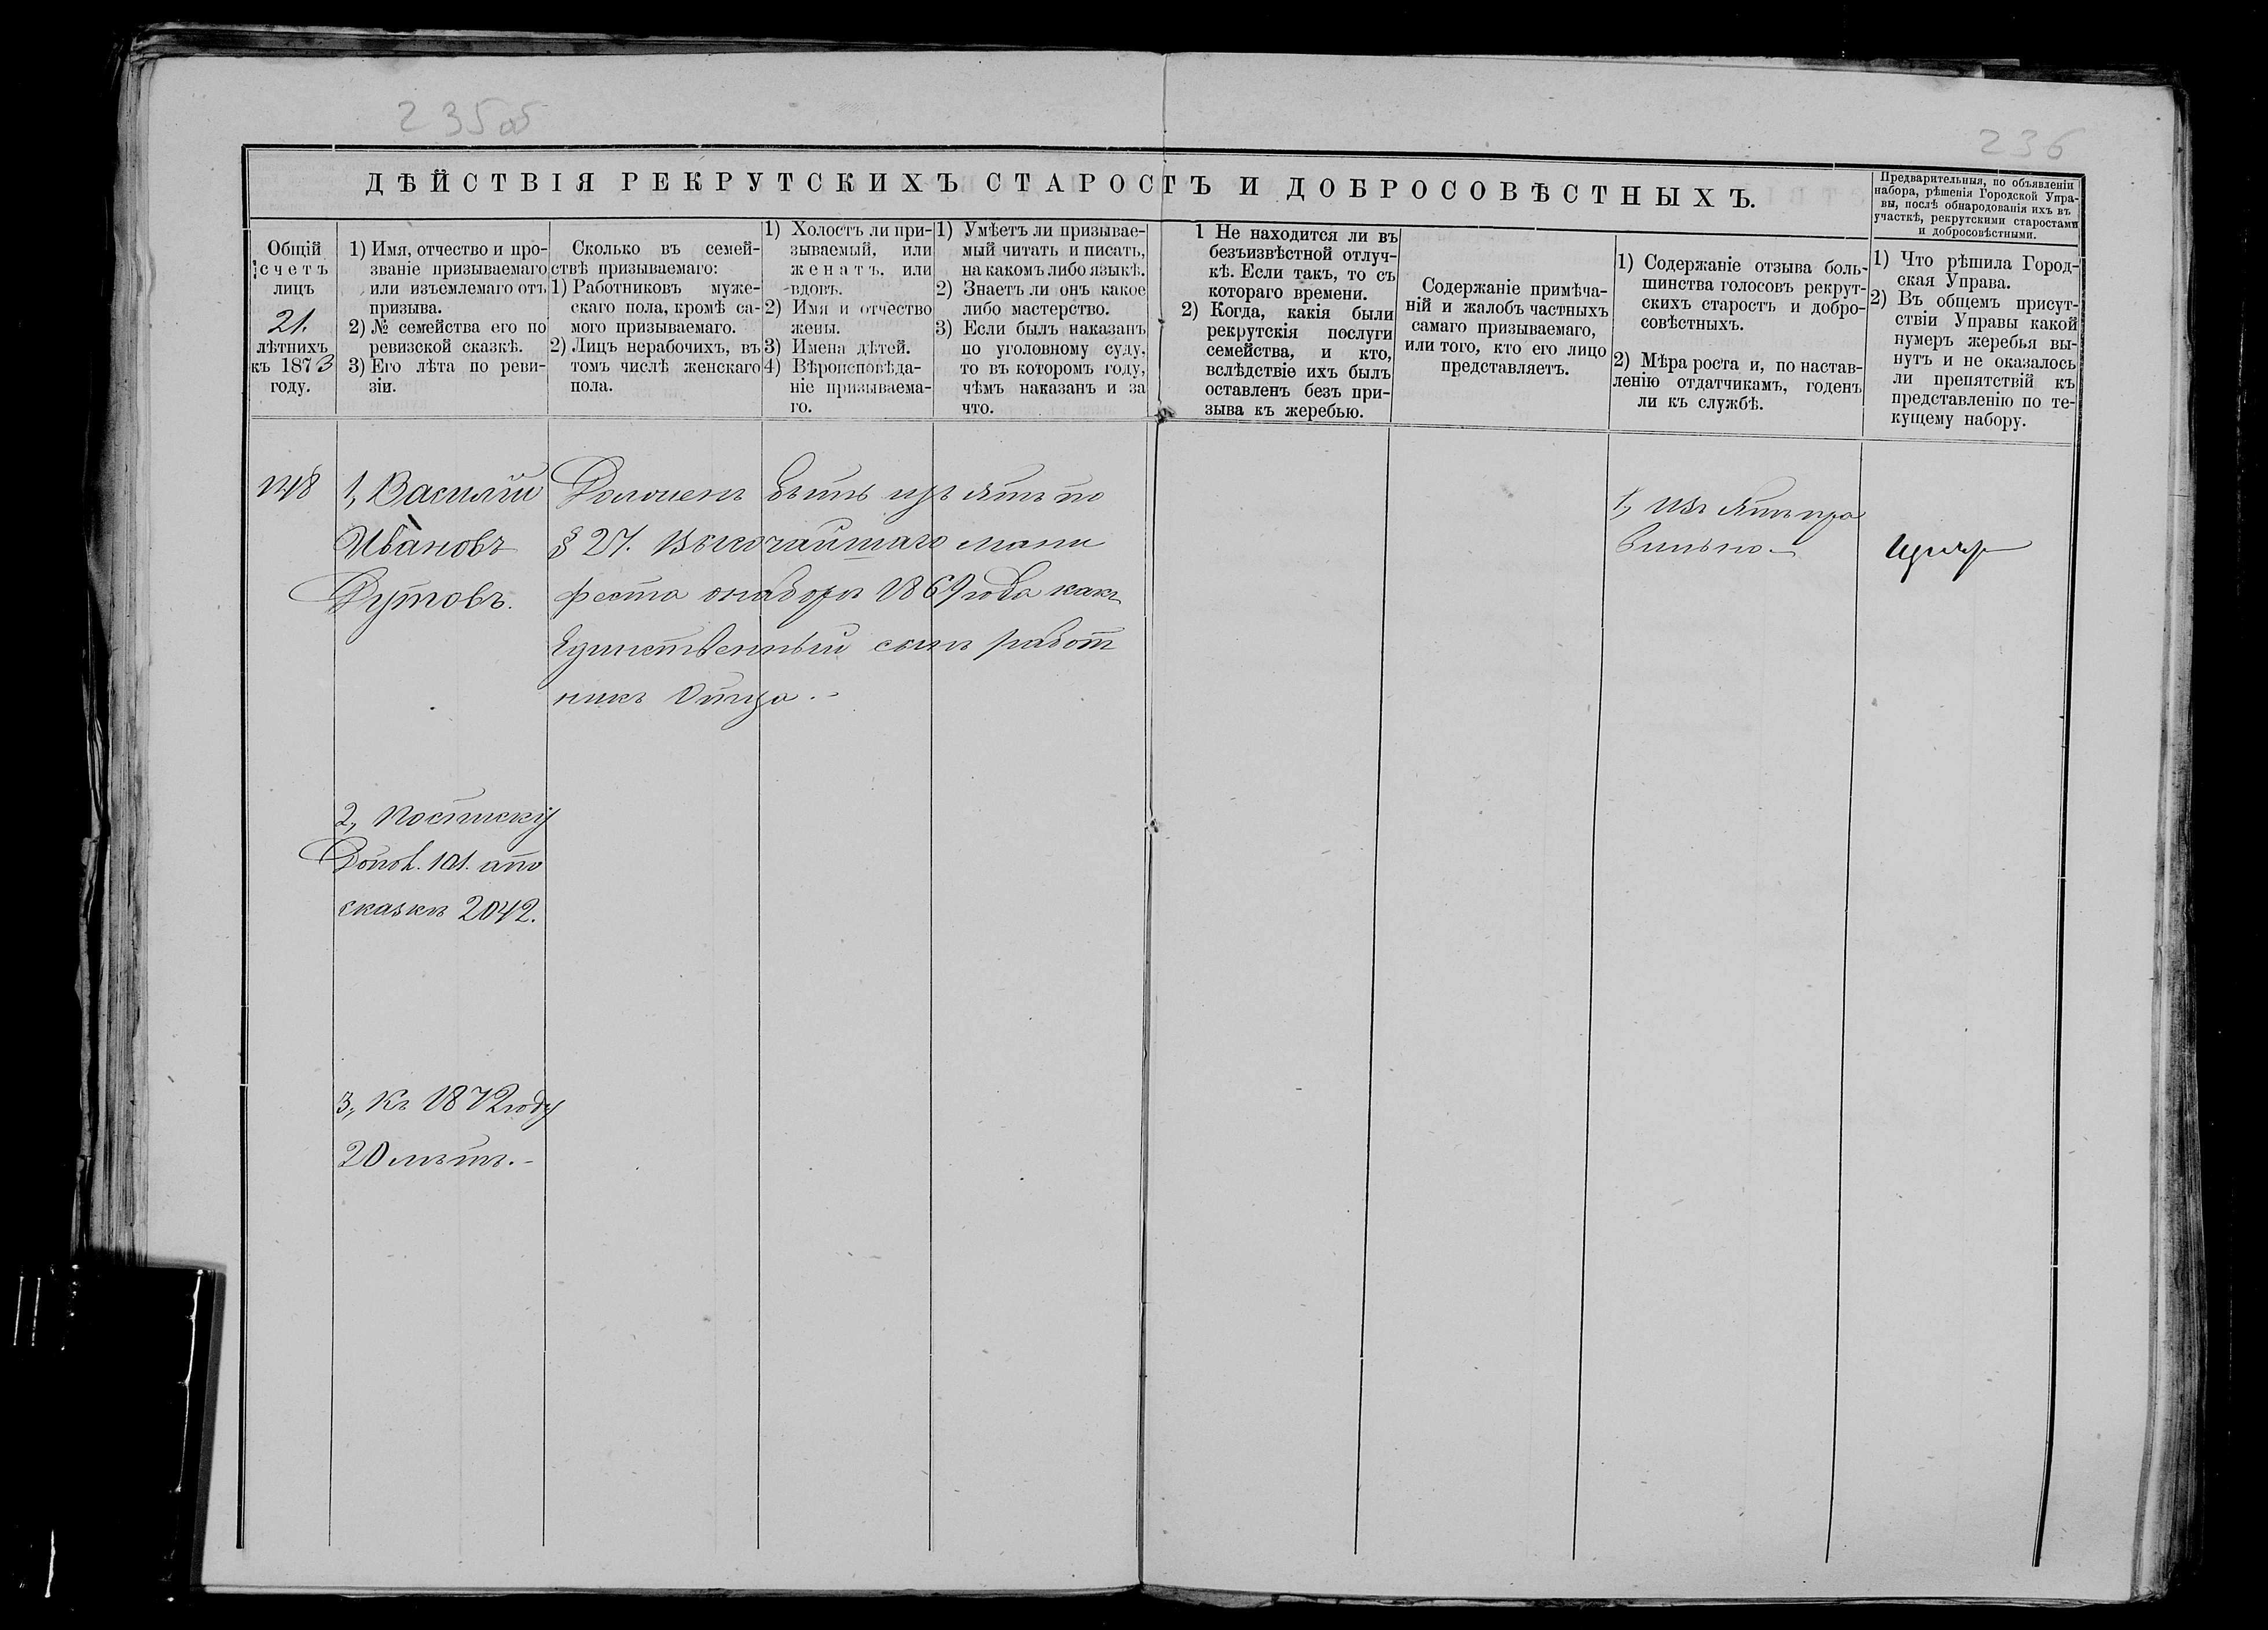 235об
236
ДѢЙСТВІЯ РЕКРУТСКИХЪ СТАРОСТЪ И ДОБРОСОВѢСТНЫХЪ.
Предварительныя, по объявленіи
набора, рѣшенія Городской Упра-
вы, послѣ обнародованія ихъ въ
участкѣ, рекрутскими старостами
и добросовѣстными.
Общій
счетъ
лицъ
21.
лѣтнихъ
къ 1873
году.
1) Имя, отчество и про-
званіе призываемаго
или изъемлемаго отъ
призыва.
2) № семейства его по
ревизской сказкѣ.
3) Его лѣта по реви-
зіи.
Сколько въ семей-
ствѣ призываемаго:
1) Работниковъ муже-
скаго пола, кромѣ са-
мого призываемаго.
2) Лицъ нерабочихъ, въ
томъ числѣ женскаго
пола.
1) Холостъ ли при-
зываемый, или
женатъ, или
вдовъ.
2) Имя и отчество
жены.
3) Имена дѣтей.
4) Вѣроисповѣда-
ніе призываема-
го.
1) Умѣетъ ли призывае-
мый читать и писать,
на какомъ либо языкѣ.
2) Знаетъ ли онъ какое
либо мастерство.
3) Если былъ наказанъ
по уголовному суду,
то въ которомъ году,
чѣмъ наказанъ и за
что.
1 Не находится ли въ
безъизвѣстной отлуч-
кѣ. Если такъ, то съ
котораго времени.
2) Когда, какія были
рекрутскія послуги
семейства, и кто,
вслѣдствіе ихъ былъ
оставленъ безъ при-
зыва къ жеребью.
Содержаніе примѣча-
ній и жалобъ частныхъ
самаго призываемаго,
или того, кто его лицо
представляетъ.
1) Содержаніе отзыва боль-
шинства голосовъ рекрут-
скихъ старостъ и добро-
совѣстныхъ.
2) Мѣра роста и, по настав-
ленію отдатчикамъ, годенъ
ли къ службѣ.
1) Что рѣшила Город-
ская Управа.
2) Въ общемъ присут-
ствіи Управы какой
нумеръ жеребья вы-
нутъ и не оказалось
ли препятствій къ
представленію по те-
кущему набору.
148
1, Василій
Ивановъ
Дутовъ.
Долженъ быть изъятъ по
§ 27. Высочайшаго мани
феста о наборѣ 1867 года какъ
Единственный сынъ работ
никъ Отца.
1, Изъятъ пра
вильно
2,
101.
сказкѣ 2042.
3, Къ 1872 году
20 лѣтъ.